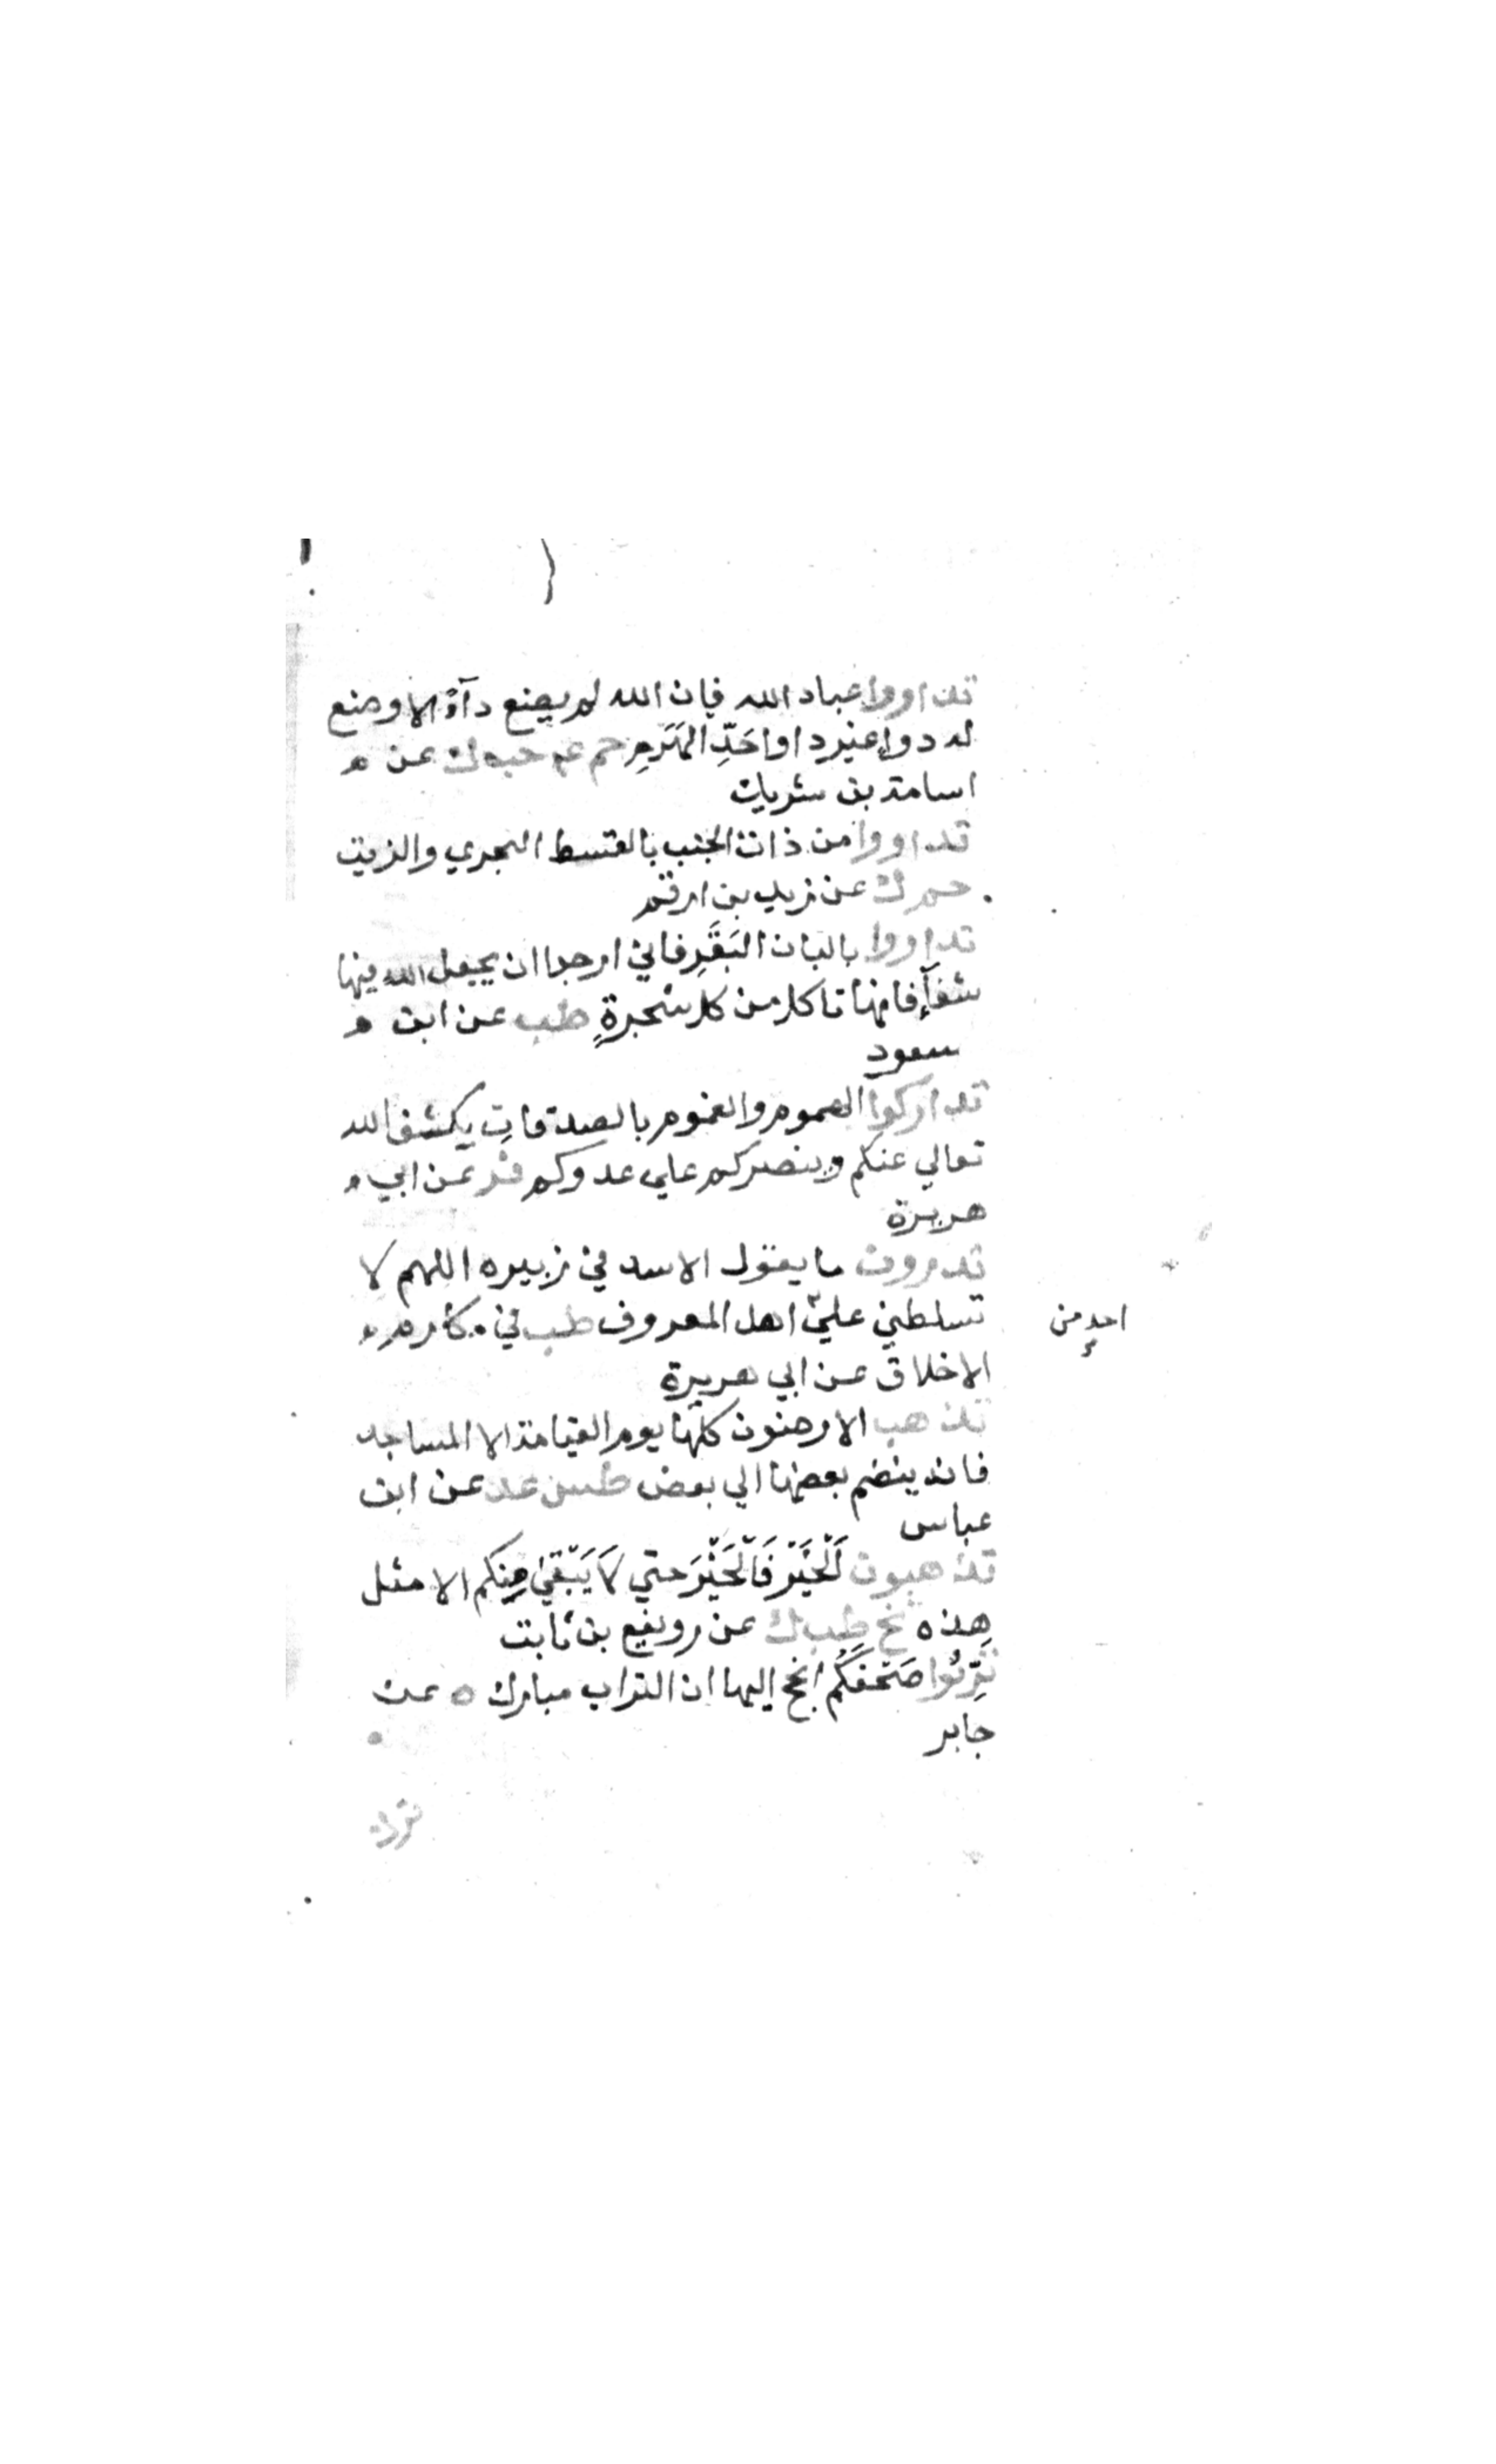 تداووا عباد الله فإن الله لم يضع دآءً الا وضع
له دواءً غير داءٍ واحدِ الهَرَمِ حم عم حب ك عن
اسامة بن شريك
تداووا من ذات الجنب بالقسط البحري والزيت
حم ك عن زيد بن ارقم
تداووا بالبان البَقَرِ فاني ارجوا ان يجعل الله فيها
شفآءً فانها تاكل من كل شجرةٍ طب عن ابن
مسعود
تداركوا الهموم والغموم بالصدقاتِ يكشف الله
تعالي عنكم وينصركم علي عدوكم فر عن ابي
هريرة
تدرون ما يقول الاسد في زبيره اللهم لا
تسلطني عليّ اهل المعروف طب في مكارم
احدٍ من
الاخلاق عن ابي هريرة
تذهب الارضون كلها يوم القيامة الا المساجد
فانه ينضم بعضها الي بعض طس عد عن ابن
عباس
تذهبون لَخَيّرَ فَالْخَيّرَ حتي لَا يَبْقَيٰ مِنكم الا مثل
هذه تخ طب ك عن رويفع بن ثابت
تَرِّبُوا صَحفكُم انجح لها ان التراب مبارك ه عن
جابر